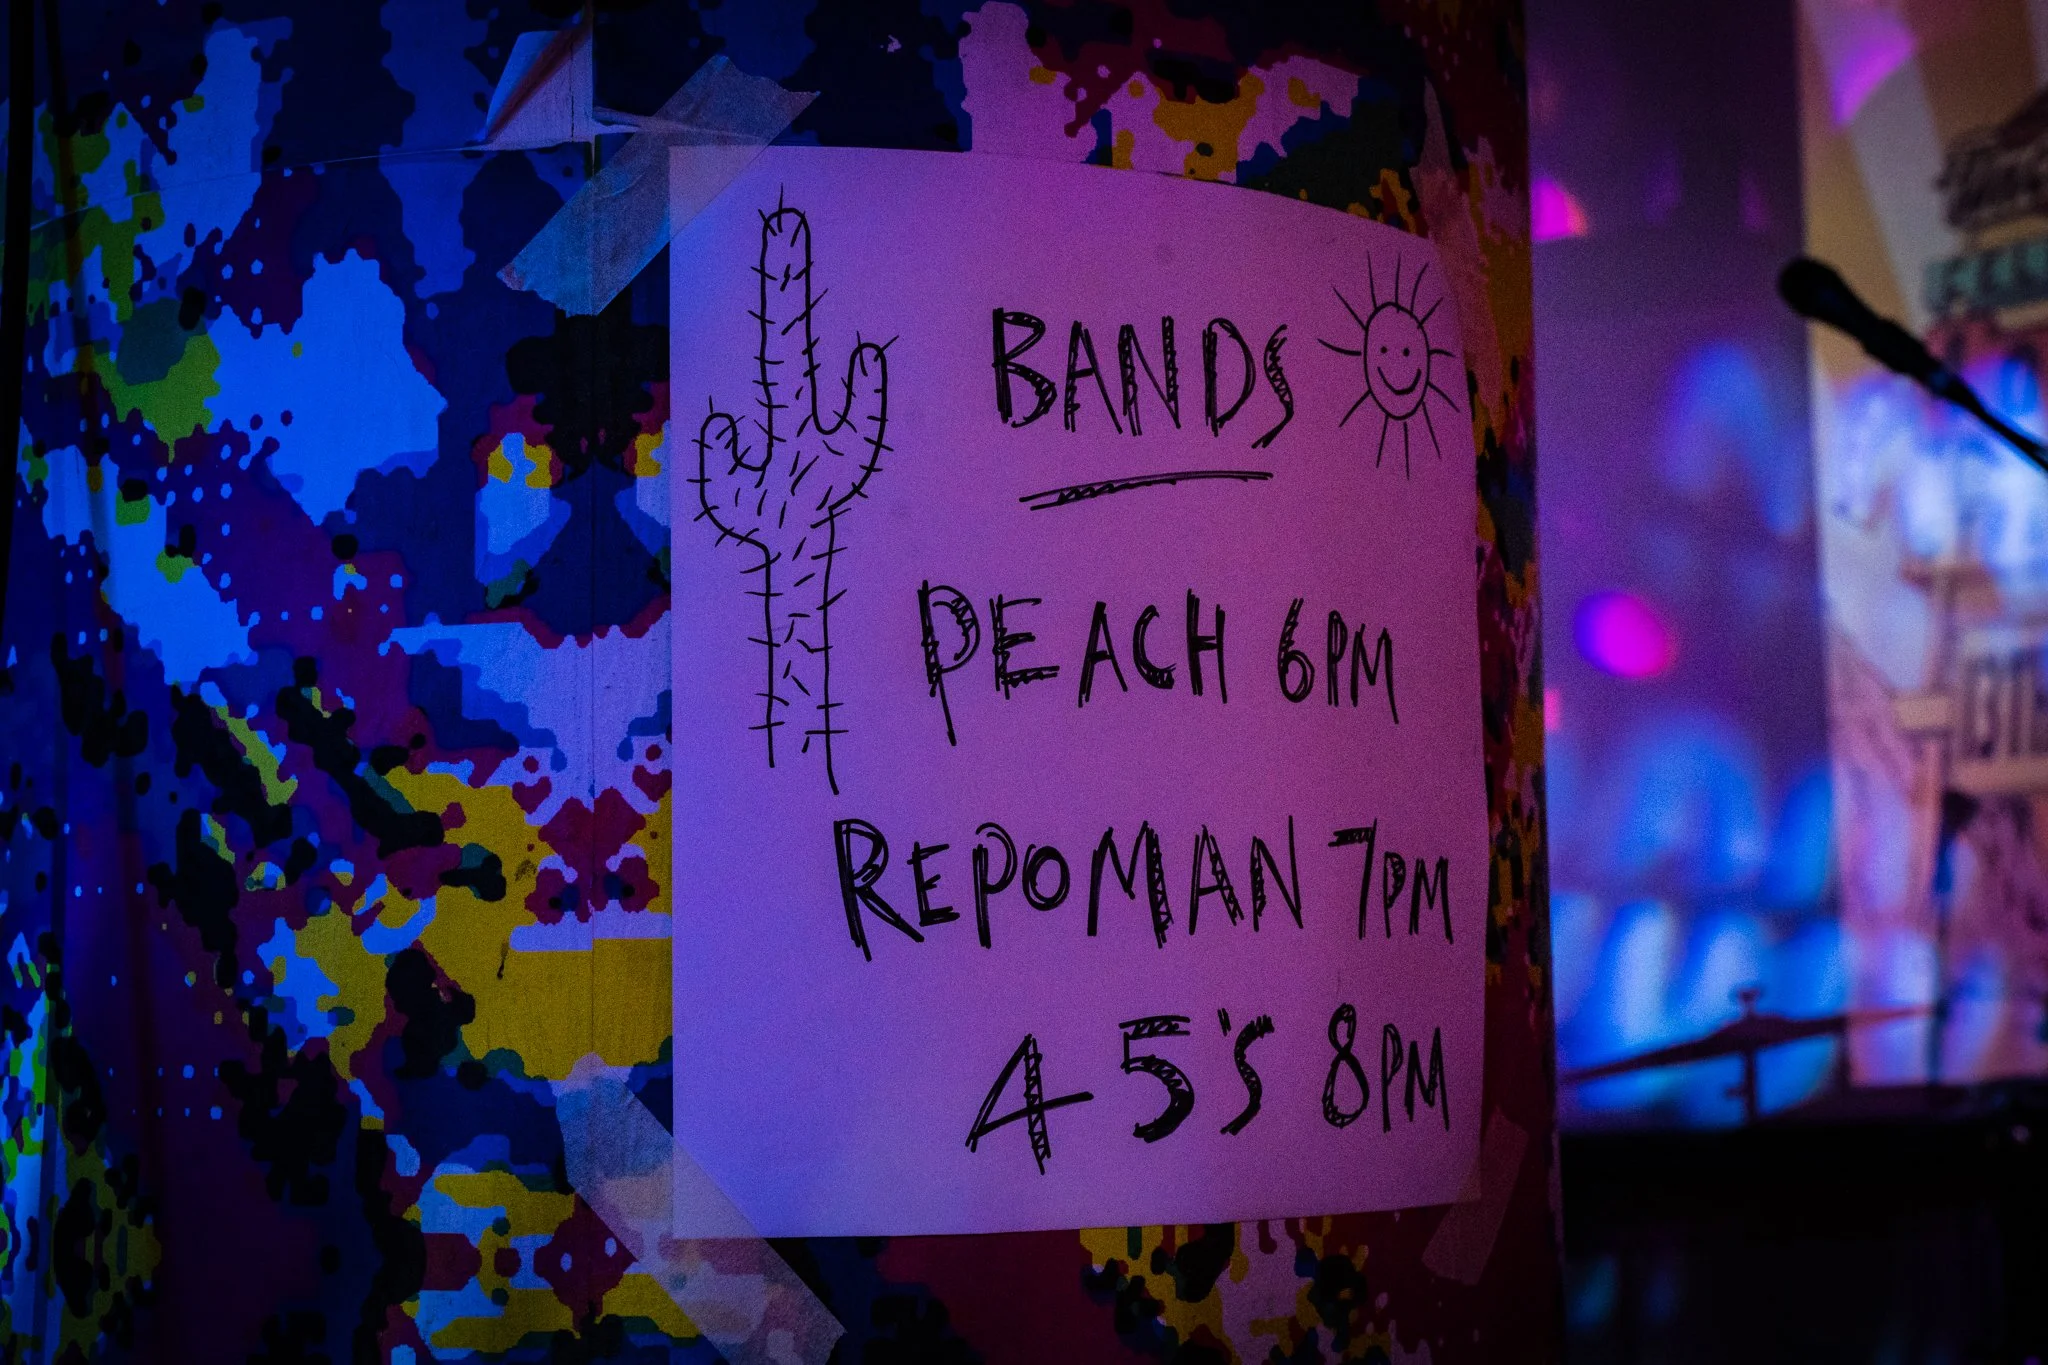 BANDS
PEACH 6PM
REPOMAN 7PM
45'S 8PM